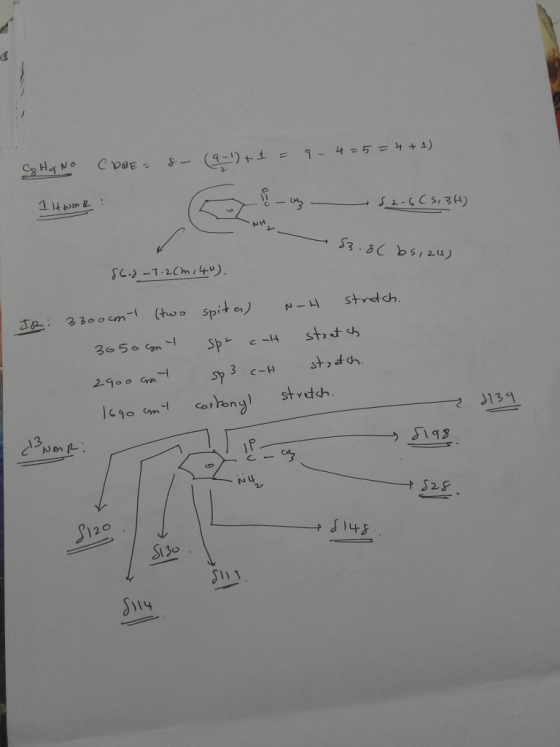 C8H9NO (DBE = 8 - (9-1)/2 + 1 = 9 - 4 = 5 = 4 + 1)
1HNMR:
O
C - CH3 δ2.6 (s, 3H)
NH2
δ3.8 ( bs, 2H)
δ6.8 - 7.2 (m, 4H).
IR: 3300 cm-1 (two spikes) N-H stretch.
3050 cm-1 sp2 C-H stretch
2900 cm-1 sp3 C-H stretch.
1690 cm-1 carbonyl stretch.
δ139
C13NMR:
O
C - CH3
δ198
NH2
δ28.
δ120.
δ148.
δ130.
δ113.
δ114.